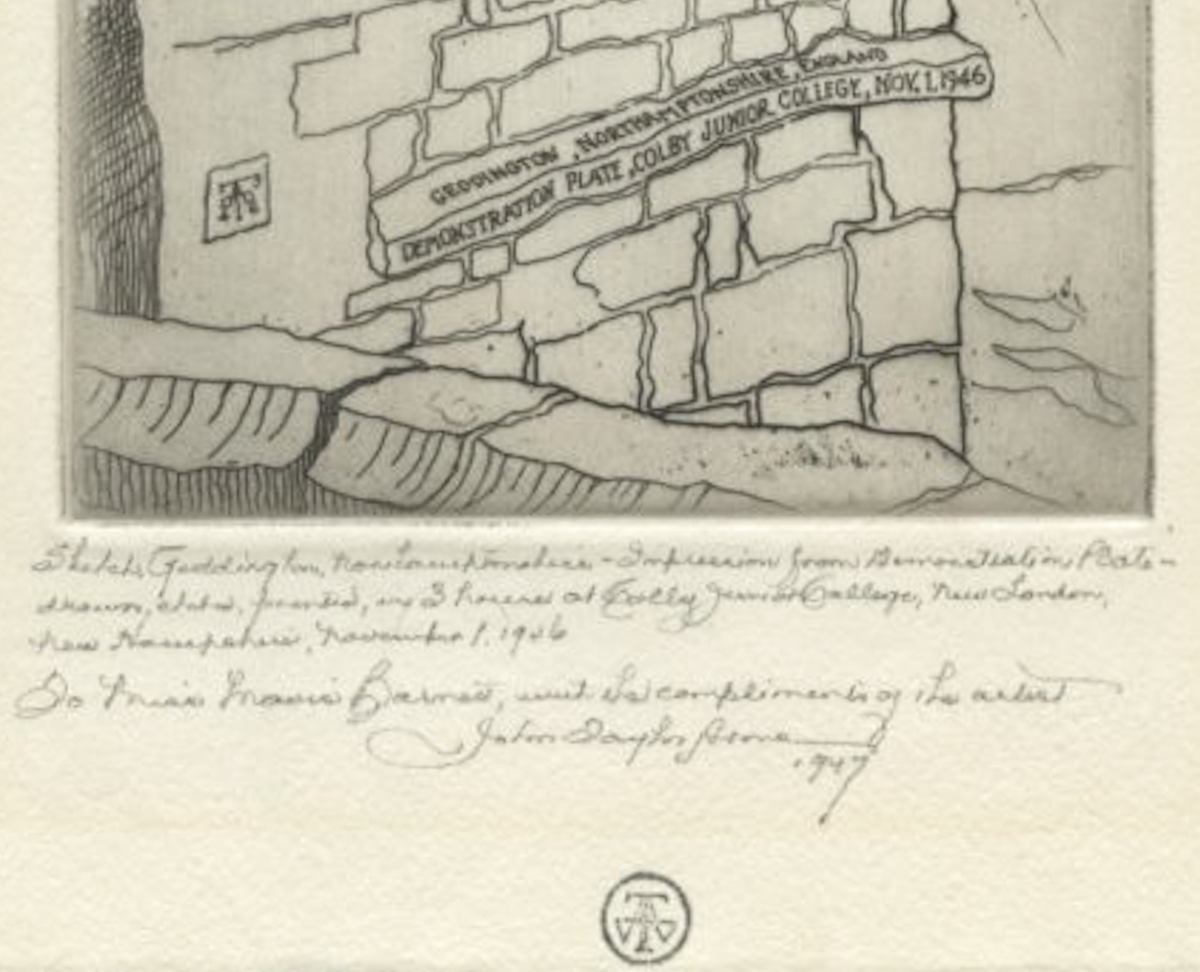 GEDDINGTON, NORTHAMPTONSHIRE, ENGLAND
DEMONSTRATION PLATE, COLBY JUNIOR COLLEGE, NOV. 1, 1946
Sketch, Geddington, Northamptonshire - Impression from Demonstration Plate -
drawn, etched, printed, in 3 hours at Colby Junior College, New London,
New Hampshire, November 1, 1946
To Miss Barnes, with the compliments of the artist
John Taylor Arms
1947